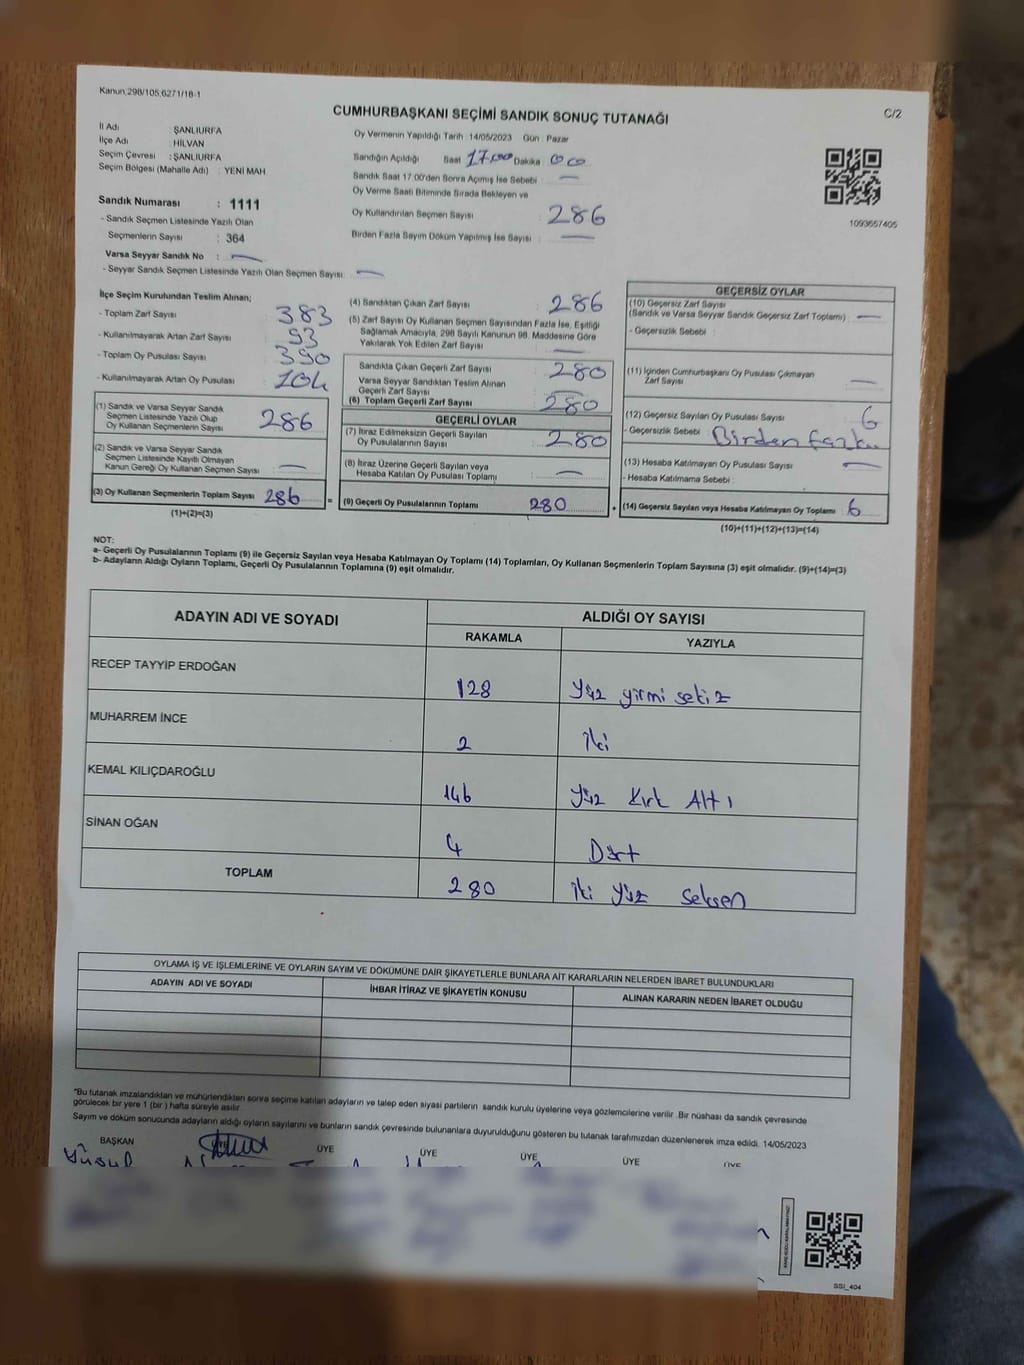 Kanun,298/105,6271/18-1
C/2
CUMHURBAŞKANI SEÇİMİ SANDIK SONUÇ TUTANAĞI
İl Adı : ŞANLIURFA
İlçe Adı : HİLVAN
Seçim Çevresi : ŞANLIURFA
Seçim Bölgesi (Mahalle Adı) : YENİ MAH
Sandık Numarası : 1111
- Sandık Seçmen Listesinde Yazılı Olan
Seçmenlerin Sayısı : 364
Varsa Seyyar Sandık No : —
- Seyyar Sandık Seçmen Listesinde Yazılı Olan Seçmen Sayısı: —
Oy Vermenin Yapıldığı Tarih :14/05/2023 Gün : Pazar
Sandığın Açıldığı Saat 17,00 Dakika 00
Sandık Saat 17.00'den Sonra Açımış İse Sebebi : —
Oy Verme Saati Bitiminde Sırada Bekleyen ve
Oy Kullandırılan Seçmen Sayısı : 286
Birden Fazla Sayım Döküm Yapılmış İse Sayısı : —
1093657405
İlçe Seçim Kurulundan Teslim Alınan;
- Toplam Zarf Sayısı : 383
- Kullanılmayarak Artan Zarf Sayısı : 93
- Toplam Oy Pusulası Sayısı : 390
- Kullanılmayarak Artan Oy Pusulası : 104
(1) Sandık ve Varsa Seyyar Sandık
Seçmen Listesinde Yazılı Olup
Oy Kullanan Seçmenlerin Sayısı : 286
(2) Sandık ve Varsa Seyyar Sandık
Seçmen Listesinde Kayıtlı Olmayan
Kanun Gereği Oy Kullanan Seçmen Sayısı : —
(3) Oy Kullanan Seçmenlerin Toplam Sayısı 286
(1)+(2)=(3)
=
(4) Sandıktan Çıkan Zarf Sayısı : 286
(5) Zarf Sayısı Oy Kullanan Seçmen Sayısından Fazla İse, Eşitliği
Sağlamak Amacıyla, 298 Sayılı Kanunun 98. Maddesine Göre
Yakılarak Yok Edilen Zarf Sayısı : —
Sandıkta Çıkan Geçerli Zarf Sayısı : 280
Varsa Seyyar Sandıktan Teslim Alınan
Geçerli Zarf Sayısı : —
(6) Toplam Geçerli Zarf Sayısı : 280
GEÇERLİ OYLAR
(7) İtiraz Edilmeksizin Geçerli Sayılan
Oy Pusulalarının Sayısı : 280
(8) İtiraz Üzerine Geçerli Sayılan veya
Hesaba Katılan Oy Pusulası Toplamı : —
(9) Geçerli Oy Pusulalarının Toplamı 280
+
GEÇERSİZ OYLAR
(10) Geçersiz Zarf Sayısı
(Sandık ve Varsa Seyyar Sandık Geçersiz Zarf Toplamı) : —
- Geçersizlik Sebebi :
(11) İçinden Cumhurbaşkanı Oy Pusulası Çıkmayan
Zarf Sayısı : —
(12) Geçersiz Sayılan Oy Pusulası Sayısı : 6
- Geçersizlik Sebebi : Birden fazla
(13) Hesaba Katılmayan Oy Pusulası Sayısı : —
- Hesaba Katılmama Sebebi :
(14) Geçersiz Sayılan veya Hesaba Katılmayan Oy Toplamı : 6
(10)+(11)+(12)+(13)=(14)
NOT:
a- Geçerli Oy Pusulalarının Toplamı (9) ile Geçersiz Sayılan veya Hesaba Katılmayan Oy Toplamı (14) Toplamları, Oy Kullanan Seçmenlerin Toplam Sayısına (3) eşit olmalıdır. (9)+(14)=(3)
b- Adayların Aldığı Oyların Toplamı, Geçerli Oy Pusulalarının Toplamına (9) eşit olmalıdır.
ADAYIN ADI VE SOYADI
ALDIĞI OY SAYISI
RAKAMLA YAZIYLA
RECEP TAYYİP ERDOĞAN 128 Yüz yirmi sekiz
MUHARREM İNCE 2 İki
KEMAL KILIÇDAROĞLU 146 Yüz Kırk Altı
SİNAN OĞAN 4 Dört
TOPLAM 280 iki yüz seksen
OYLAMA İŞ VE İŞLEMLERİNE VE OYLARIN SAYIM VE DÖKÜMÜNE DAİR ŞİKAYETLERLE BUNLARA AİT KARARLARIN NELERDEN İBARET BULUNDUKLARI
ADAYIN ADI VE SOYADI İHBAR İTİRAZ VE ŞİKAYETİN KONUSU ALINAN KARARIN NEDEN İBARET OLDUĞU
"Bu tutanak imzalandıktan ve mühürlendikten sonra seçime katılan adayların ve talep eden siyasi partilerin sandık kurulu üyelerine veya gözlemcilerine verilir .Bir nüshası da sandık çevresinde
görülecek bir yere 1 (bir ) hafta süreyle asılır.
Sayım ve döküm sonucunda adayların aldığı oyların sayılarını ve bunların sandık çevresinde bulunanlara duyurulduğunu gösteren bu tutanak tarafımızdan düzenlenerek imza edildi. 14/05/2023
BAŞKAN ÜYE ÜYE ÜYE ÜYE ÜYE
SSI_404